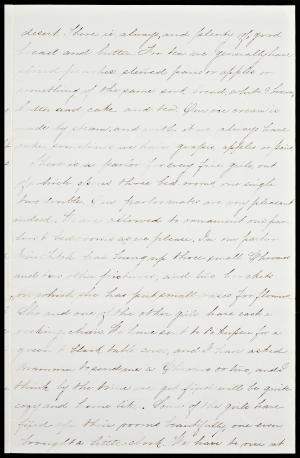 desert. There is always, and plenty of good
bread and butter. For tea we generally have
sliced peaches stewed pears or apples or
something of the same sort, bread, white & brown,
butter and cake and tea. Our ice cream is
made by steam, and with it we always have
cake, sometimes we have grapes, apples or pears
There is a parlor for every five girls, out
of which opens three bed rooms, one single
two double. Our parlor mates are very pleasant
indeed. We are allowed to ornament our par-
lor & bed rooms as we please. In our parlor
Miss has hung up three small Chromos
and two other pictures, and two brackets
on which she has put small vases for flowers.
She and one of the other girls have each a
rocking chair. We have sent to for a
green & black table cover, and I have asked
Mamma to send me a Chromo or two, and I
think by the time we get fixed will be quite
cozy and home like. Some of the girls have
fixed up their rooms beautifully, one even
brought a little clock. We have to rise at